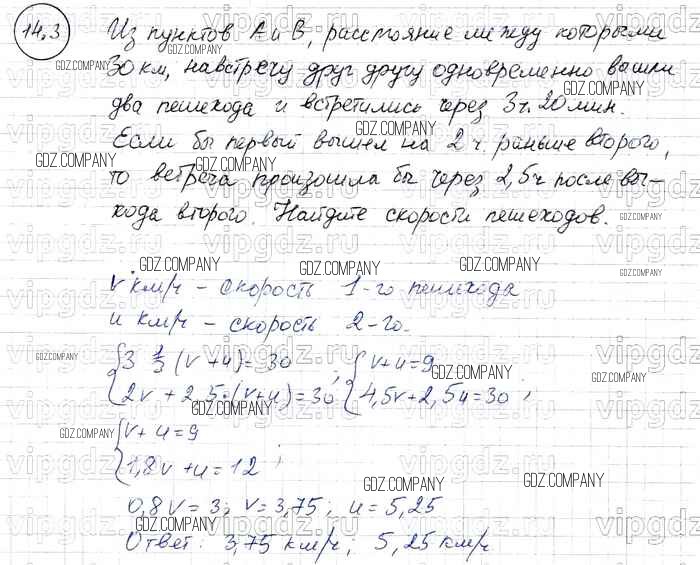 14.3 Из пунктов А и В, расстояние между которыми
30 км, навстречу друг другу одновременно вышли
два пешехода и встретились через 3ч. 20 мин.
Если бы первый вышел на 2 ч. раньше второго,
то встреча произошла бы через 2,5ч после вы-
хода второго. Найдите скорости пешеходов.
v км/ч – скорость 1-го пешехода
u км/ч – скорость 2-го.
{3 1/3 (v + u) = 30 ; {v + u = 9
{2v + 2,5·(v+u) = 30 {4,5v + 2,5u = 30 ;
{v + u = 9
{1,8v + u = 12 ;
0,8v = 3; v = 3,75; u = 5,25
Ответ: 3,75 км/ч; 5,25 км/ч
GDZ.COMPANY
vipgdz.ru